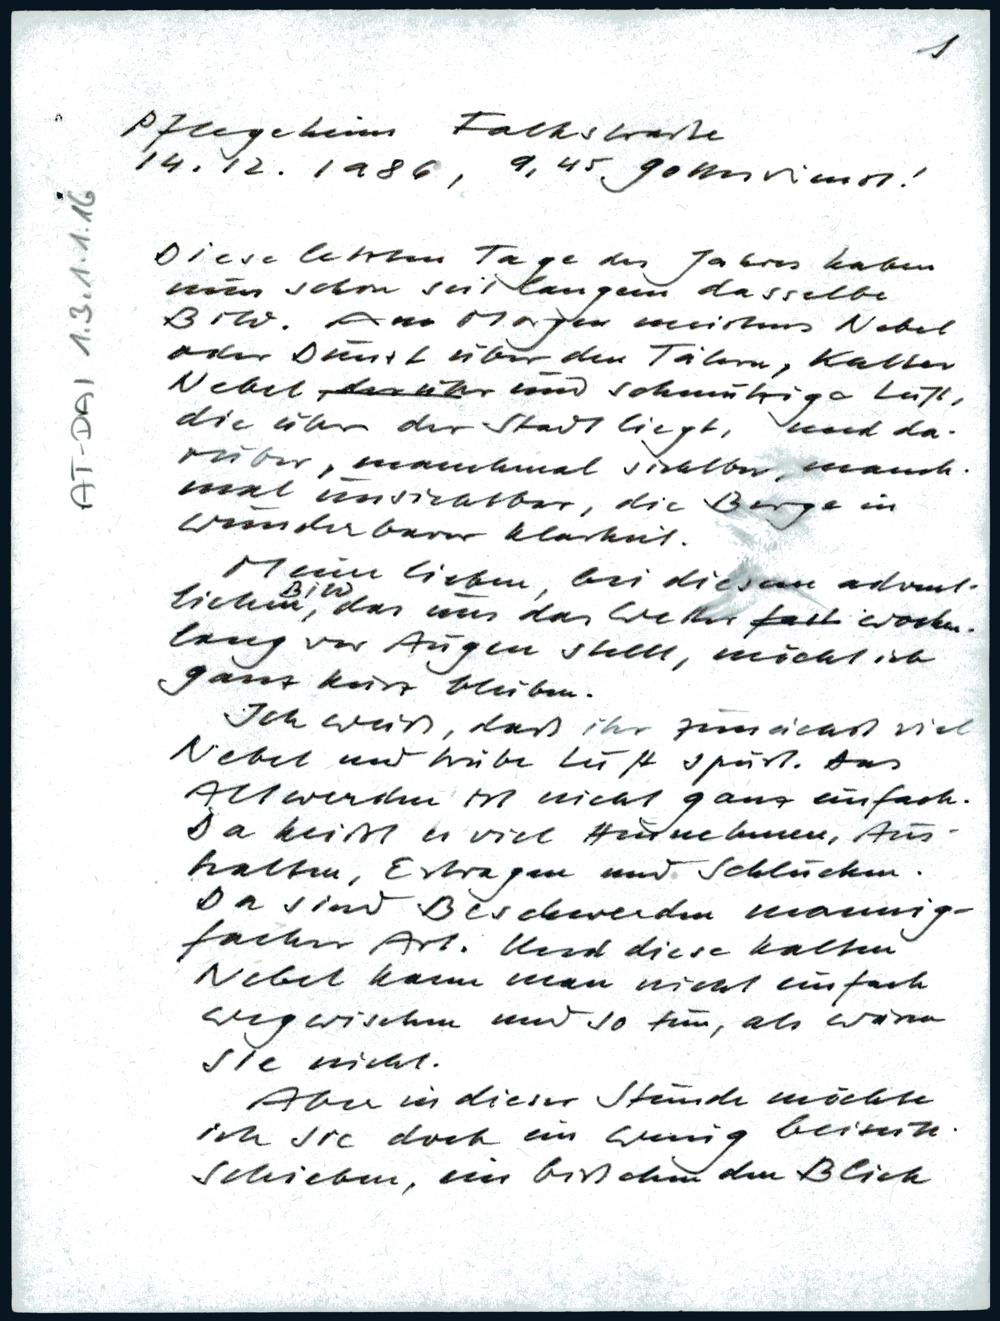 1
Pflegeheim Falkstraße
14. 12. 1986, 9,45 Gottesdienst!
AT-DAI 1.3.1.1.16
Diese letzten Tage des Jahres haben
nun schon seit langem dasselbe
Bild. Am Morgen meistens Nebel
oder Dunst über den Tälern, kalter
Nebel, darüber und schmutzige Luft,
die über der Stadt liegt, und da-
rüber, manchmal sichtbar, manch-
mal unsichtbar, die Berge in
wunderbarer Klarheit.
Meine lieben, bei diesem advent-
lichen Bild, das uns das Wetter fast wochen-
lang vor Augen stellt, möcht ich
ganz kurz bleiben.
Ich weiß, daß ihr zunächst viel
Nebel und trübe Luft spürt. Das
Altwerden ist nicht ganz einfach.
Da heißt es viel Hinnehmen, Aus-
halten, Ertragen und Schlucken.
Da sind Beschwerden mannig-
facher Art. Und diese kalten
Nebel kann man nicht einfach
wegwischen und so tun, als wären
sie nicht.
Aber in dieser Stunde möchte
ich sie doch ein wenig beiseite-
schieben, ein bißchen den Blick